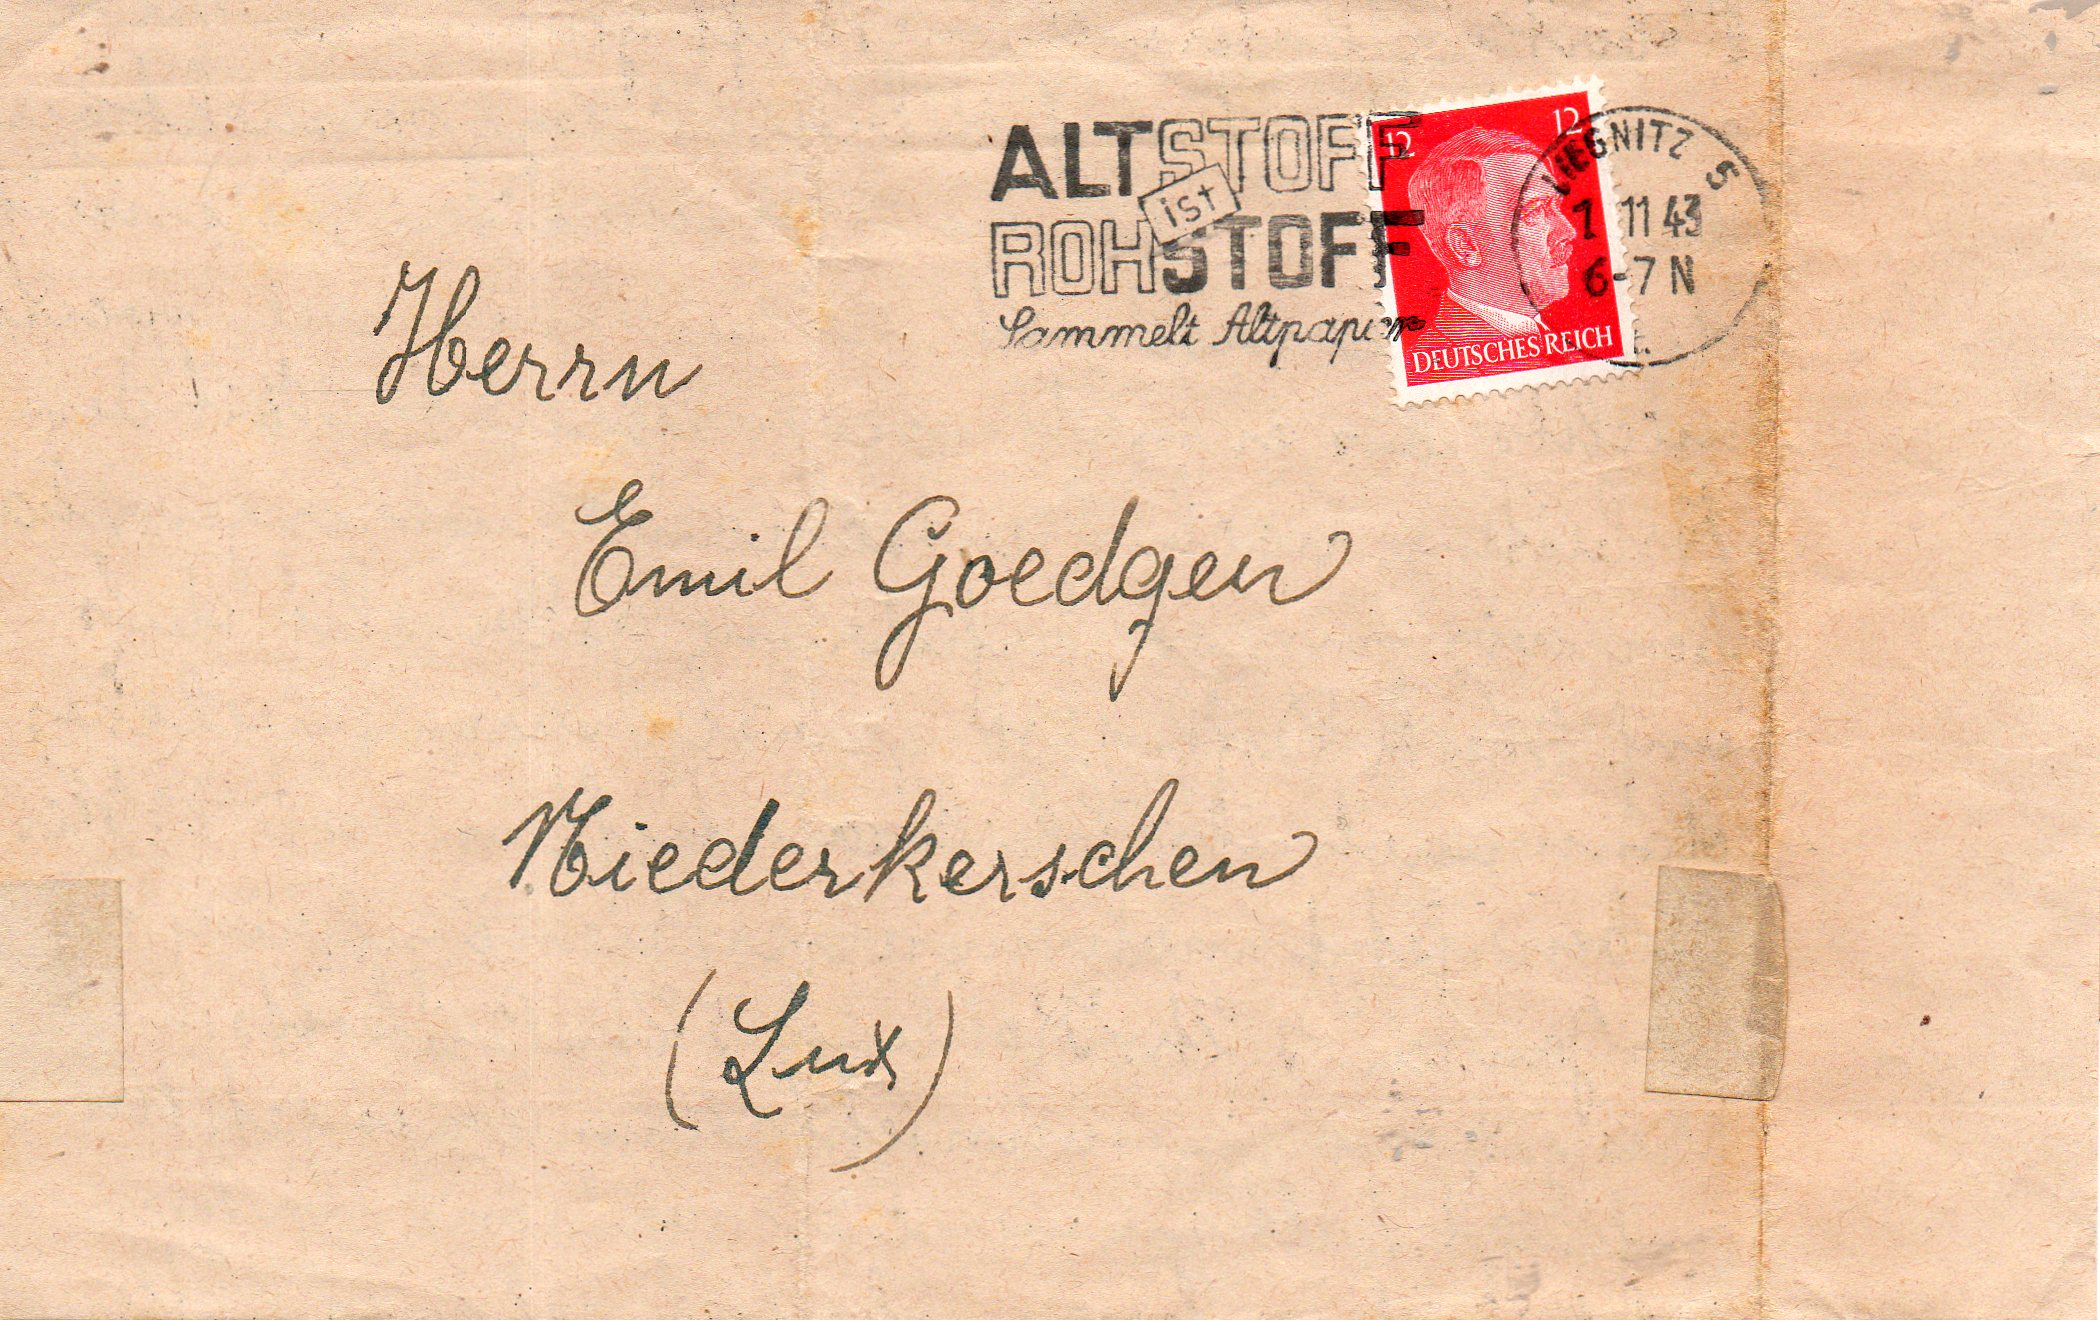 ALTSTOFF
ist
ROHSTOFF
Sammelt Altpapier
12 12
DEUTSCHES REICH
LIEGNITZ 5
7 11 43
6-7 N
Herrn
Emil Goedgen
Niederkerschen
(Lux)